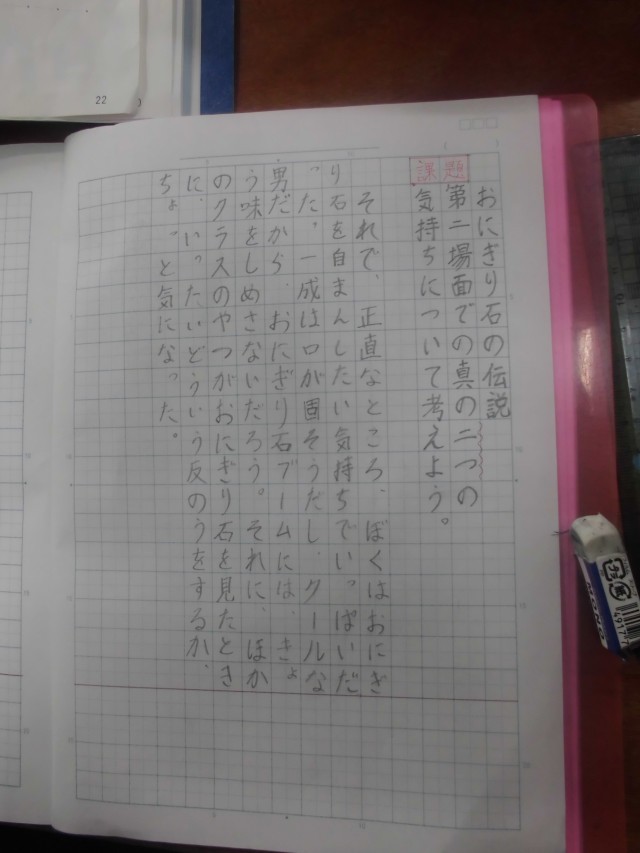 22
おにぎり石の伝説
課題
第二場面での真の二つの
気持ちについて考えよう。
それで、正直なところ、ぼくはおにぎ
り石を自まんしたい気持ちでいっぱいだ
った。一成は口が固そうだし、クールな
男だから、おにぎり石ブームには、きょ
う味をしめさないだろう。それに、ほか
のクラスのやつがおにぎり石を見たとき
に、いったいどういう反のうをするか、
ちょっと気になった。
MONO